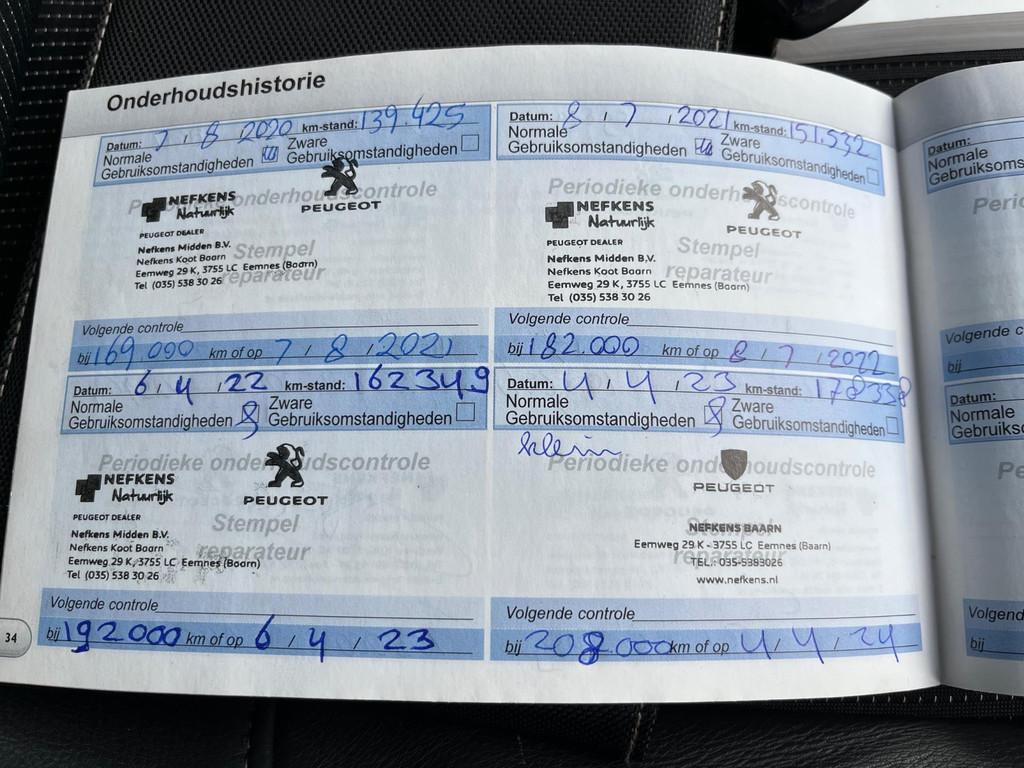 Onderhoudshistorie
Datum: 7 / 8 / 2020 km-stand: 139.425
Normale Gebruiksomstandigheden Zware Gebruiksomstandigheden
Periodieke onderhoudscontrole
NEFKENS
Natuurlijk
PEUGEOT
PEUGEOT DEALER
Stempel reparateur
Nefkens Midden B.V.
Nefkens Koot Baarn
Eemweg 29 K, 3755 LC Eemnes (Baarn)
Tel (035) 538 30 26
Volgende controle
bij 169.000 km of op 7 / 8 / 2021
Datum: 8 / 7 / 2021 km-stand: 151.532
Normale Gebruiksomstandigheden Zware Gebruiksomstandigheden
Periodieke onderhoudscontrole
NEFKENS
Natuurlijk
PEUGEOT
PEUGEOT DEALER
Stempel reparateur
Nefkens Midden B.V.
Nefkens Koot Baarn
Eemweg 29 K, 3755 LC Eemnes (Baarn)
Tel (035) 538 30 26
Volgende controle
bij 182.000 km of op 8 / 7 / 2022
Datum: 6 / 4 / 22 km-stand: 162349
Normale Gebruiksomstandigheden Zware Gebruiksomstandigheden
Periodieke onderhoudscontrole
NEFKENS
Natuurlijk
PEUGEOT
PEUGEOT DEALER
Stempel reparateur
Nefkens Midden B.V.
Nefkens Koot Baarn
Eemweg 29 K, 3755 LC Eemnes (Baarn)
Tel (035) 538 30 26
Volgende controle
bij 192000 km of op 6 / 4 / 23
Datum: 4 / 4 / 23 km-stand: 178358
Normale Gebruiksomstandigheden Zware Gebruiksomstandigheden
klein
Periodieke onderhoudscontrole
PEUGEOT
Stempel reparateur
NEFKENS BAARN
Eemweg 29 K - 3755 LC Eemnes (Baarn)
TEL.: 035-5383026
www.nefkens.nl
Volgende controle
bij 208.000 km of op 4 / 4 / 24
34
Datum:
Normale
Volgende c
bij
Datum:
Normale
bij